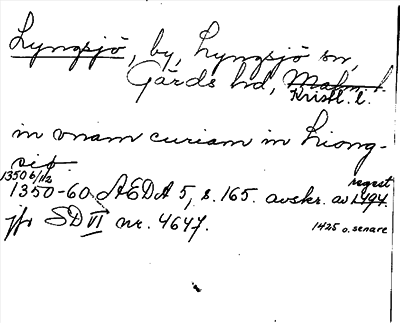 Lyngsjö, by, Lyngsjö sn,
Gärds hd, Malm. l.
Kristi. l.
in vnam curiam in Liong-
siø.
1350 6/12
1350-60. ÆDA 5, s. 165. avskr. av 1494.
regest
jfr SD VI nr. 4647.
1425 o. senare